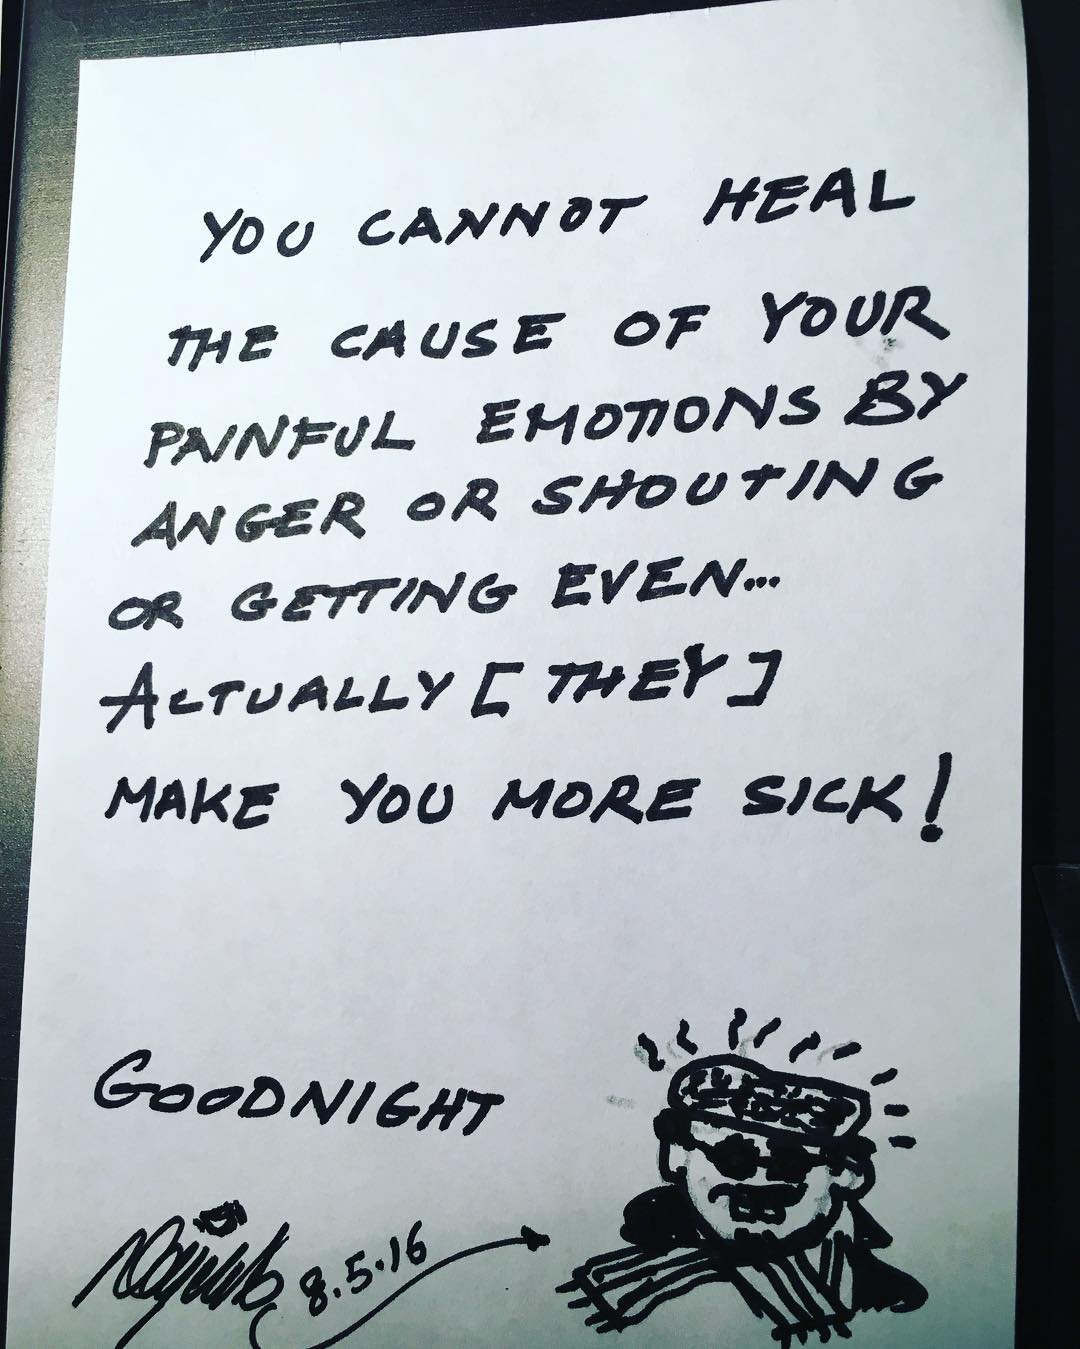 YOU CANNOT HEAL
THE CAUSE OF YOUR
PAINFUL EMOTIONS BY
ANGER OR SHOUTING
OR GETTING EVEN...
ACTUALLY [THEY]
MAKE YOU MORE SICK!
GOODNIGHT
8.5.16